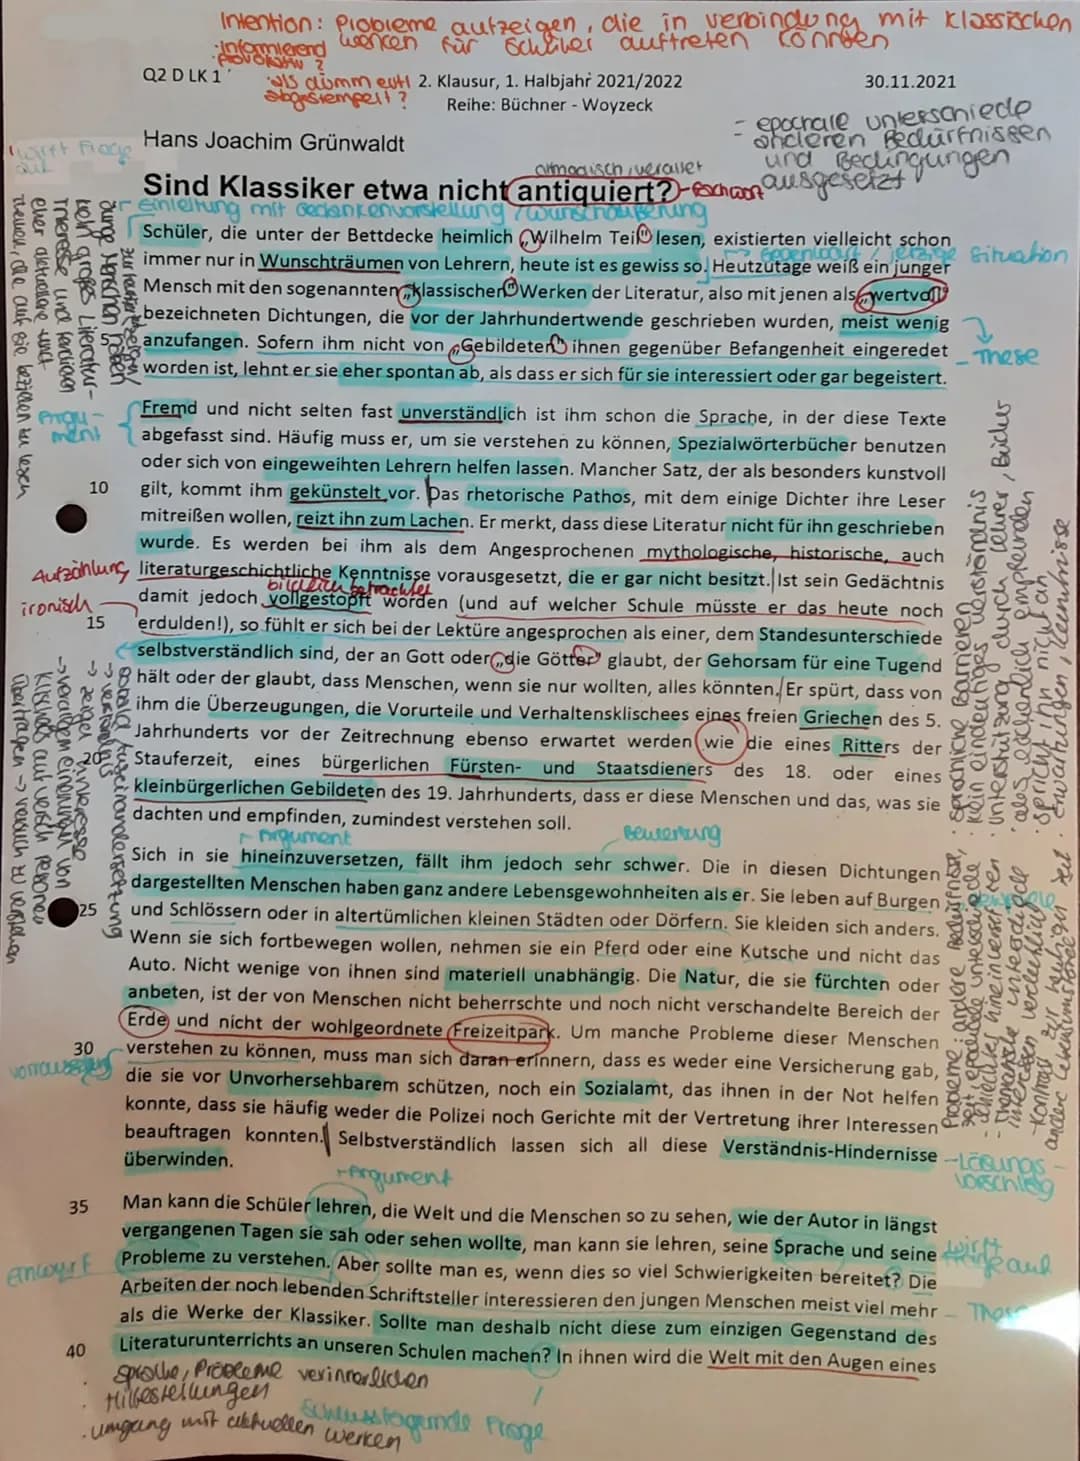 Intention: Probleme aufzeigen, die in verbindung mit klassischen
werken für Schüler auftreten könnten
·informierend
provokativ?
als dumm evtl
abgestempelt?
Q2 D LK 1
2. Klausur, 1. Halbjahr 2021/2022
30.11.2021
Reihe: Büchner - Woyzeck
- epochale unterschiede
anderen Bedürfnissen
und Bedingungen
ausgesetzt
Hans Joachim Grünwaldt
wirft Frage
auf
altmodisch, veraltet
Sind Klassiker etwa nicht antiquiert?
Einleitung mit Gedankenvorstellung / Wunschäußerung
Schüler, die unter der Bettdecke heimlich „Wilhelm Tell“ lesen, existierten vielleicht schon
Gegenwart / jetzige Situation
immer nur in Wunschträumen von Lehrern, heute ist es gewiss so. Heutzutage weiß ein junger
Mensch mit den sogenannten „klassischen“ Werken der Literatur, also mit jenen als „wertvoll“
bezeichneten Dichtungen, die vor der Jahrhundertwende geschrieben wurden, meist wenig
5 anzufangen. Sofern ihm nicht von „Gebildeten“ ihnen gegenüber Befangenheit eingeredet
These
worden ist, lehnt er sie eher spontan ab, als dass er sich für sie interessiert oder gar begeistert.
junge Menschen haben
kein großes Literatur-
interesse und fordern
eher aktuellere
Themen, die auf sie beziehen zu lesen
Argu-
ment
Fremd und nicht selten fast unverständlich ist ihm schon die Sprache, in der diese Texte
abgefasst sind. Häufig muss er, um sie verstehen zu können, Spezialwörterbücher benutzen
oder sich von eingeweihten Lehrern helfen lassen. Mancher Satz, der als besonders kunstvoll
10 gilt, kommt ihm gekünstelt vor. Das rhetorische Pathos, mit dem einige Dichter ihre Leser
mitreißen wollen, reizt ihn zum Lachen. Er merkt, dass diese Literatur nicht für ihn geschrieben
wurde. Es werden bei ihm als dem Angesprochenen mythologische, historische, auch
Aufzählung
literaturgeschichtliche Kenntnisse vorausgesetzt, die er gar nicht besitzt. Ist sein Gedächtnis
bildlich betrachtet
ironisch
damit jedoch vollgestopft worden (und auf welcher Schule müsste er das heute noch
15 erdulden!), so fühlt er sich bei der Lektüre angesprochen als einer, dem Standesunterschiede
selbstverständlich sind, der an Gott oder „die Götter“ glaubt, der Gehorsam für eine Tugend
hält oder der glaubt, dass Menschen, wenn sie nur wollten, alles könnten. Er spürt, dass von
ihm die Überzeugungen, die Vorurteile und Verhaltensklischees eines freien Griechen des 5.
Jahrhunderts vor der Zeitrechnung ebenso erwartet werden wie die eines Ritters der
20 Stauferzeit, eines bürgerlichen Fürsten- und Staatsdieners des 18. oder eines
kleinbürgerlichen Gebildeten des 19. Jahrhunderts, dass er diese Menschen und das, was sie
dachten und empfinden, zumindest verstehen soll.
· Sprachliche Barrieren
· kein eindeutiges Verständnis
· Unterstützung durch Lehrer, Bücher
· als lächerlich empfunden
· spricht ihn nicht an
· Erwartungen, Kenntnisse
auseinandersetzung
→ verständnis
→ zeigen interesse
→ vor allem einennung von
Klischees auf versch. Personen
übertragen → versuch zu verstehen
Argument
Bewertung
Sich in sie hineinzuversetzen, fällt ihm jedoch sehr schwer. Die in diesen Dichtungen
dargestellten Menschen haben ganz andere Lebensgewohnheiten als er. Sie leben auf Burgen
25 und Schlössern oder in altertümlichen kleinen Städten oder Dörfern. Sie kleiden sich anders.
Wenn sie sich fortbewegen wollen, nehmen sie ein Pferd oder eine Kutsche und nicht das
Auto. Nicht wenige von ihnen sind materiell unabhängig. Die Natur, die sie fürchten oder
anbeten, ist der von Menschen nicht beherrschte und noch nicht verschandelte Bereich der
Erde und nicht der wohlgeordnete Freizeitpark. Um manche Probleme dieser Menschen
30 verstehen zu können, muss man sich daran erinnern, dass es weder eine Versicherung gab,
die sie vor Unvorhersehbarem schützen, noch ein Sozialamt, das ihnen in der Not helfen
konnte, dass sie häufig weder die Polizei noch Gerichte mit der Vertretung ihrer Interessen
beauftragen konnten. Selbstverständlich lassen sich all diese Verständnis-Hindernisse
überwinden.
Probleme: andere Bedürfnisse,
Zeit, epochale unterschiede
- schlechter hineinversetzen
- Thematische unterschiede
interessen verdeutlichen
- Kontrast zur heutigen Zeit
andere Lebensumstände
-Lösungs-
vorschlag
Argument
35 Man kann die Schüler lehren, die Welt und die Menschen so zu sehen, wie der Autor in längst
vergangenen Tagen sie sah oder sehen wollte, man kann sie lehren, seine Sprache und seine
wirft
Frage auf
Einwurf
Probleme zu verstehen. Aber sollte man es, wenn dies so viel Schwierigkeiten bereitet? Die
Arbeiten der noch lebenden Schriftsteller interessieren den jungen Menschen meist viel mehr
- These
als die Werke der Klassiker. Sollte man deshalb nicht diese zum einzigen Gegenstand des
40 Literaturunterrichts an unseren Schulen machen? In ihnen wird die Welt mit den Augen eines
· Sprache, Probleme verinnerlichen
· Hilfestellungen
· umgang mit aktuellen werken
Schlussfolgernde Frage